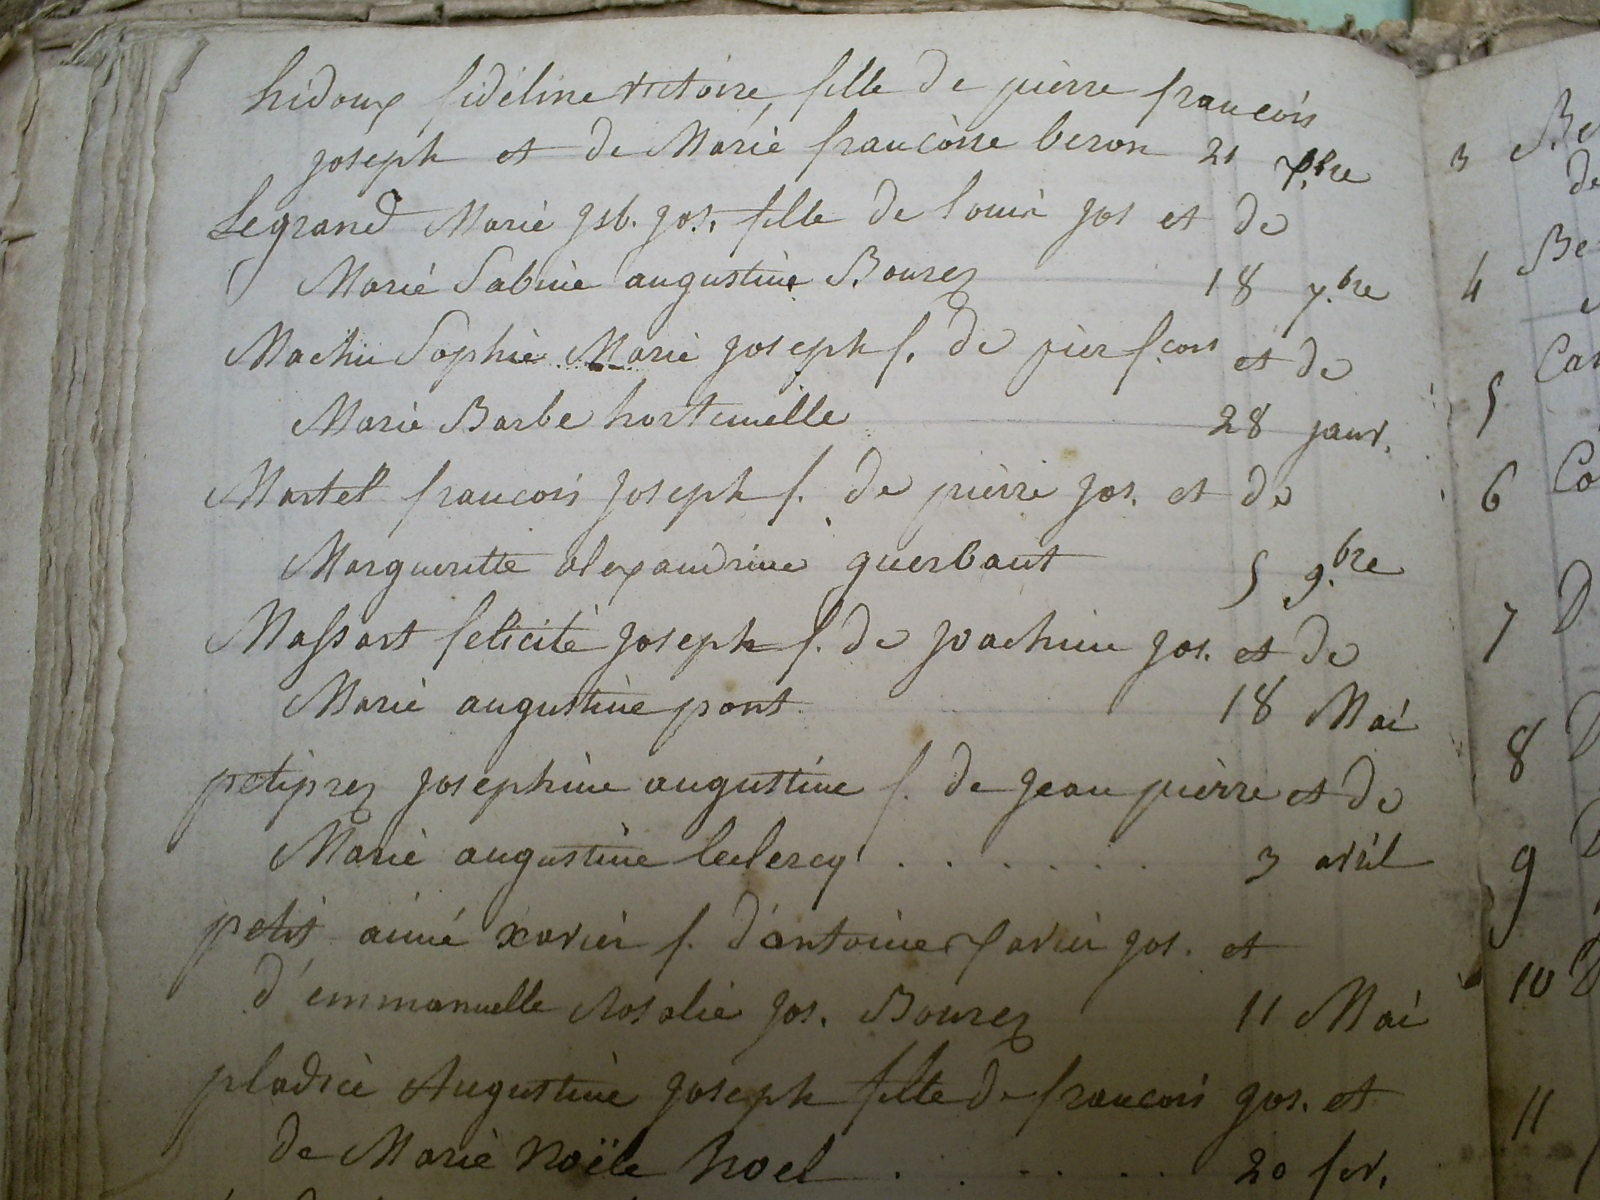 hidoux fidéline victoire, fille de pierre francois
joseph et de Marie francoise beron 21 7.bre
Legrand Marie isb. jos. fille de louis jos et de
Marie Sabine augustine Bourez 18 7.bre
Machu Sophie Marie joseph f. de pier f.cois et de
Marie Barbe 28 janv.
Martel francois joseph f. de pierre jos. et de
Margueritte alexandrine querbant 5 9.bre
Massart felicité joseph f. de joachim jos. et de
Marie augustine pont 18 Mai
petiprez josephine augustine f. de jean pierre et de
Marie augustine leclercq . . . . . . . 3 avril
petit aimé xavier f. d'antoine xavier jos. et
d'emmanuelle Rosalie jos. Bourez 11 Mai
pladier Augustine joseph fille de francois jos. et
de Marie Noële Noel . . . . . . 20 fev.
3 Be
de
4 Be
5 Car
6 Co
7 D
8 D
9 D
10 D
11